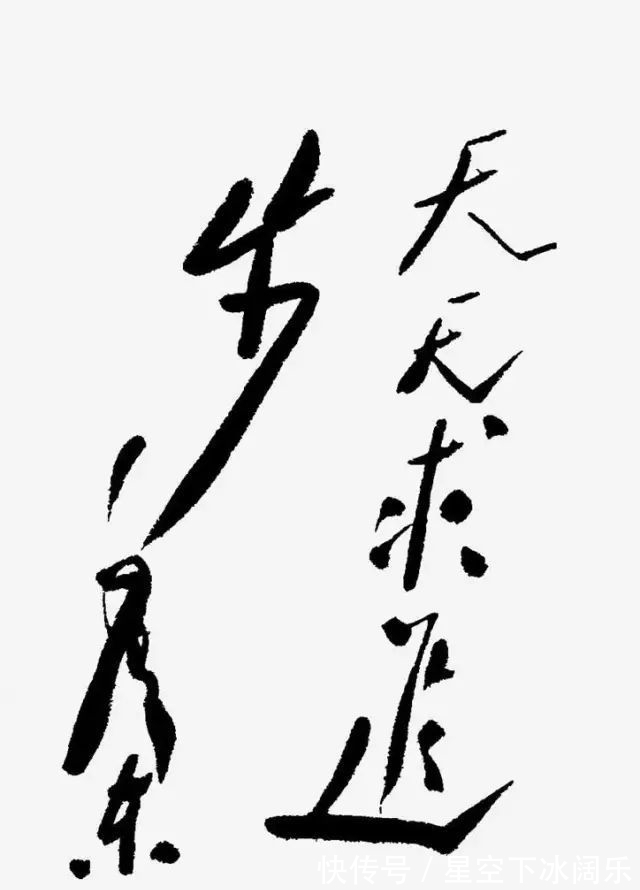 天天求進
步 泽东
快传号 / 星空下冰阔乐